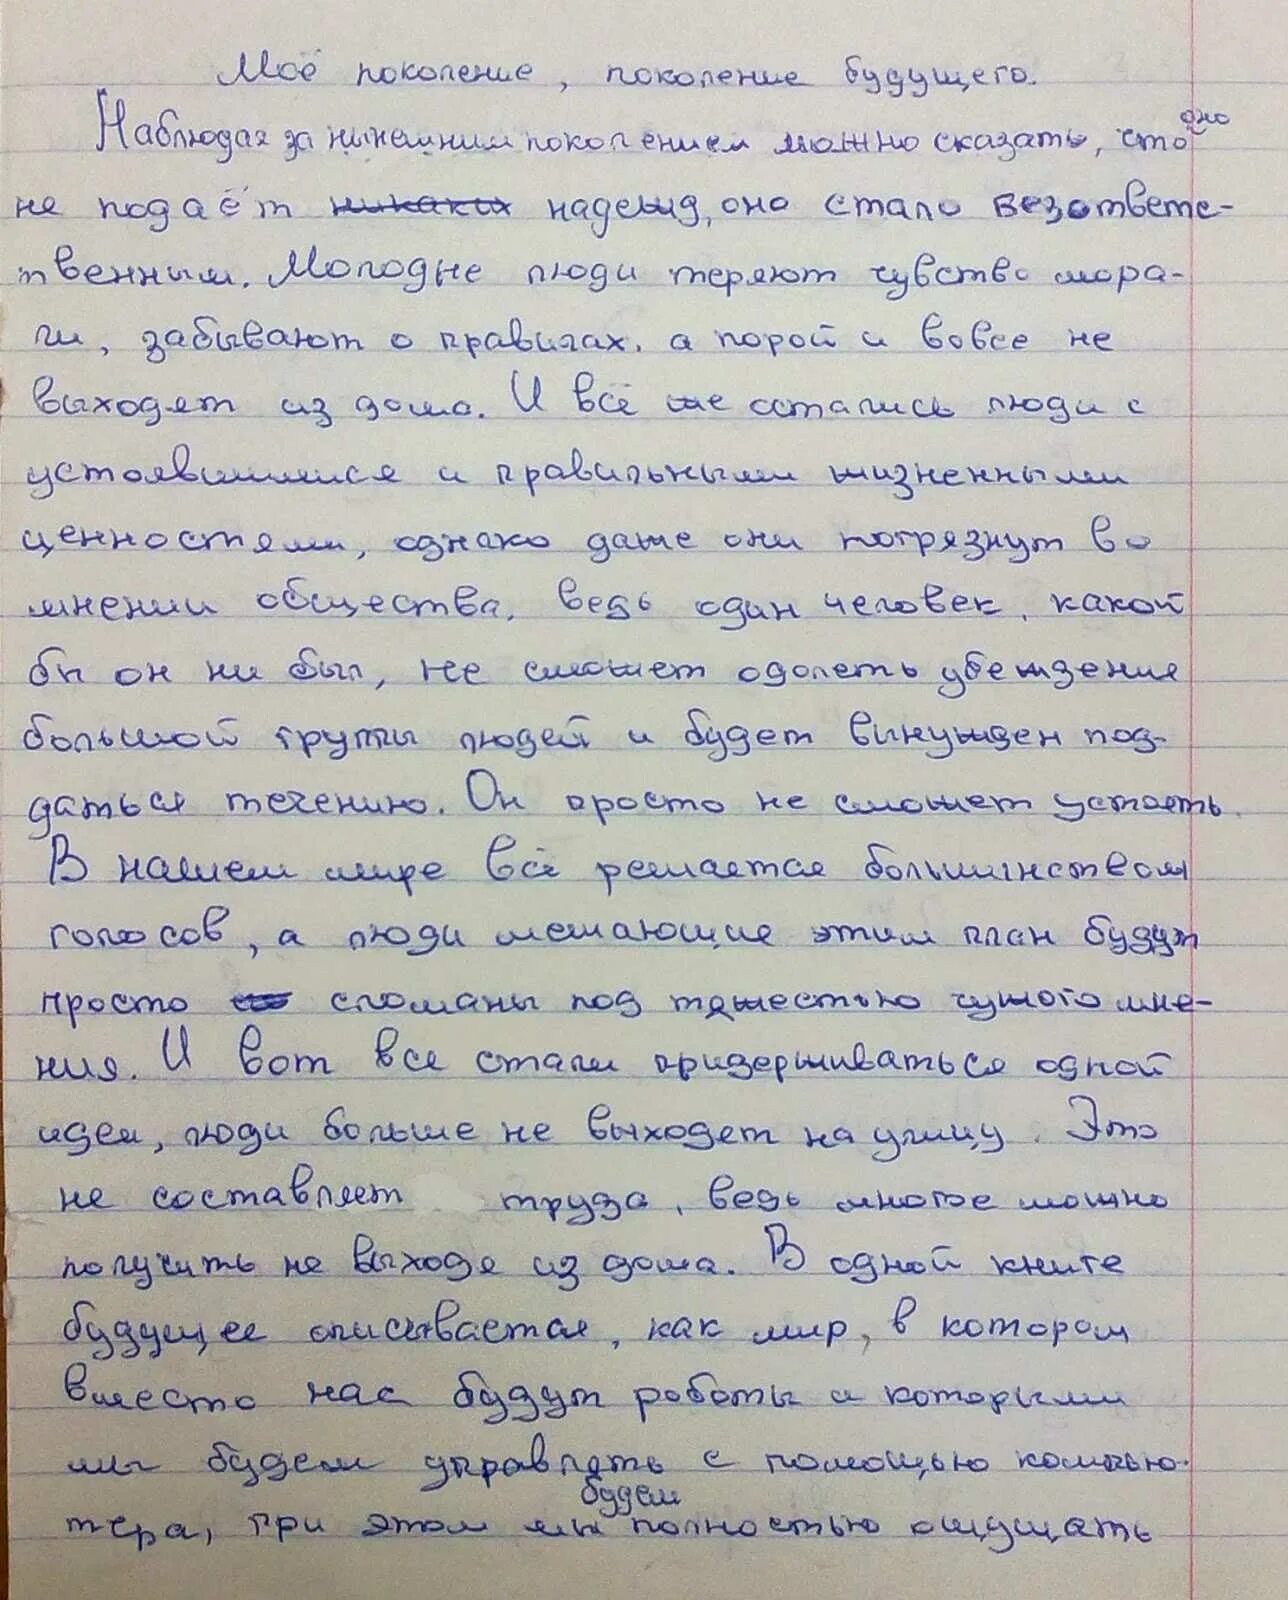 Моё поколение, поколение будущего.
Наблюдая за нынешним поколением можно сказать, что оно
не подаёт никаких надежд, оно стало безответс-
твенным. Молодые люди теряют чувство мора-
ли, забывают о правилах, а порой и вовсе не
выходят из дома. И всё же остались люди с
устоявшимися и правильными жизненными
ценностями, однако даже они погрязнут во
мнении общества, ведь один человек, какой
бы он ни был, не сможет одолеть убеждения
большой группы людей и будет вынужден под-
даться течению. Он просто не сможет устоять.
В нашем мире всё решается большинством
голосов, а люди мешающие этим план будут
просто сломаны под тяжестью чужого мне-
ния. И вот все стали придерживаться одной
идеи, люди больше не выходят на улицу. Это
не составляет труда, ведь многое можно
получить не выходя из дома. В одной книге
будущее описывается, как мир, в котором
вместо нас будут роботы и которыми
мы будем управлять с помощью компью-
тера, при этом мы будем полностью ощущать